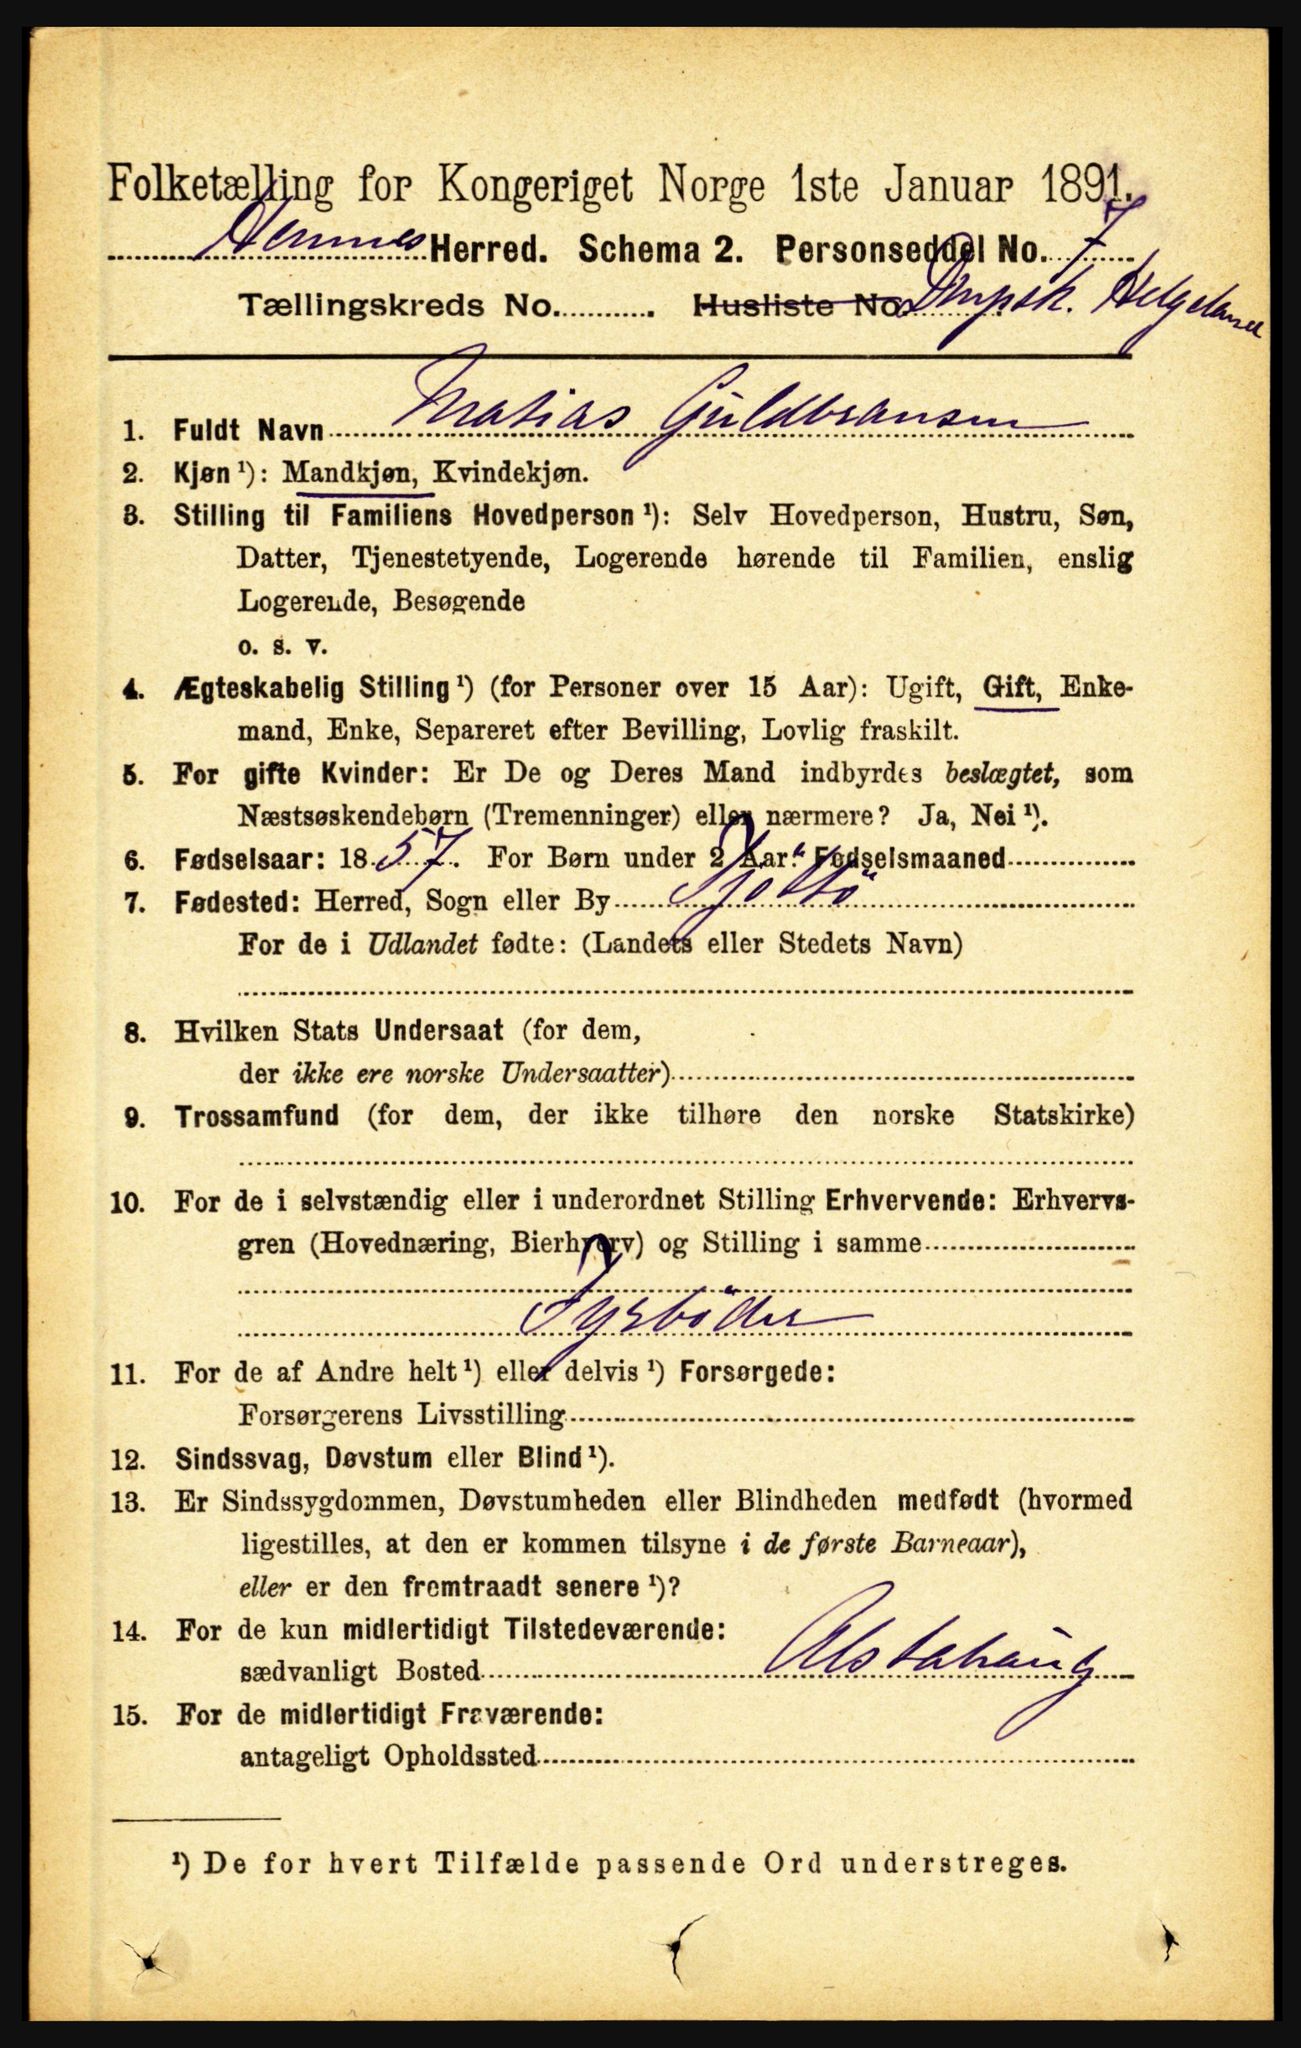 Folketælling for Kongeriget Norge 1ste Januar 1891.
Hemnes Herred. Schema 2. Personseddel No. 7
Tællingskreds No. . Husliste No. Dmpsk. Helgeland
1. Fuldt Navn Matias Guldbransen
2. Kjøn ¹): Mandkjøn, Kvindekjøn.
3. Stilling til Familiens Hovedperson ¹): Selv Hovedperson, Hustru, Søn,
Datter, Tjenestetyende, Logerende hørende til Familien, enslig
Logerende, Besøgende
o. s. v.
4. Ægteskabelig Stilling ¹) (for Personer over 15 Aar): Ugift, Gift, Enke-
mand, Enke, Separeret efter Bevilling, Lovlig fraskilt.
5. For gifte Kvinder: Er De og Deres Mand indbyrdes beslægtet, som
Næstsøskendebørn (Tremenninger) eller nærmere? Ja, Nei ¹).
6. Fødselsaar: 1857. For Børn under 2 Aar: Fødselsmaaned
7. Fødested: Herred, Sogn eller By Tjøttö
For de i Udlandet fødte: (Landets eller Stedets Navn)
8. Hvilken Stats Undersaat (for dem,
der ikke ere norske Undersaatter)
9. Trossamfund (for dem, der ikke tilhøre den norske Statskirke)
10. For de i selvstændig eller i underordnet Stilling Erhvervende: Erhvervs-
gren (Hovednæring, Bierhverv) og Stilling i samme
Fyrböder
11. For de af Andre helt ¹) eller delvis ¹) Forsørgede:
Forsørgerens Livsstilling
12. Sindssvag, Døvstum eller Blind ¹).
13. Er Sindssygdommen, Døvstumheden eller Blindheden medfødt (hvormed
ligestilles, at den er kommen tilsyne i de første Barneaar),
eller er den fremtraadt senere ¹)?
14. For de kun midlertidigt Tilstedeværende:
sædvanligt Bosted Alstahaug
15. For de midlertidigt Fraværende:
antageligt Opholdssted
¹) De for hvert Tilfælde passende Ord understreges.